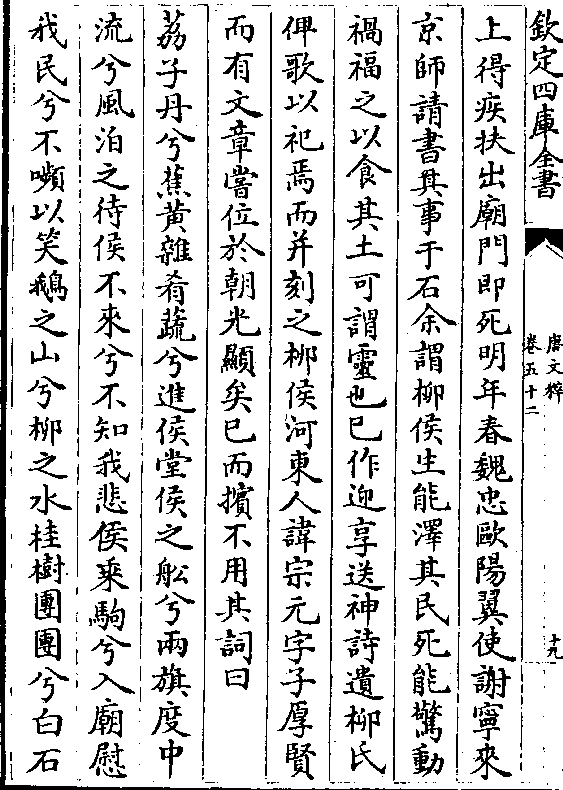 欽定四庫全書
唐文粹
卷五十二
十九
上得疾扶出廟門即死明年春魏忠歐陽翼使謝寧來
京師請書其事于石余謂柳侯生能澤其民死能驚動
禍福之以食其土可謂靈也已作迎享送神詩遺柳氏
俾歌以祀焉而并刻之柳侯河東人諱宗元字子厚賢
而有文章嘗位於朝光顯矣已而擯不用其詞曰
荔子丹兮蕉黄雜肴蔬兮進侯堂侯之舩兮兩旗度中
流兮風泊之待侯不來兮不知我悲侯乘駒兮入廟慰
我民兮不嚬以笑鵝之山兮柳之水桂樹團團兮白石